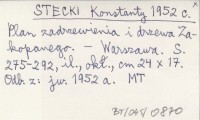 STECKI Konstanty 1952 c.
Plan zadrzewienia i drzewa Za-
kopanego. — Warszawa. S.
275-292, il., okł., cm 24 x 17.
Odb. z: jw. 1952 a. MT
BT/OAS/ 0870